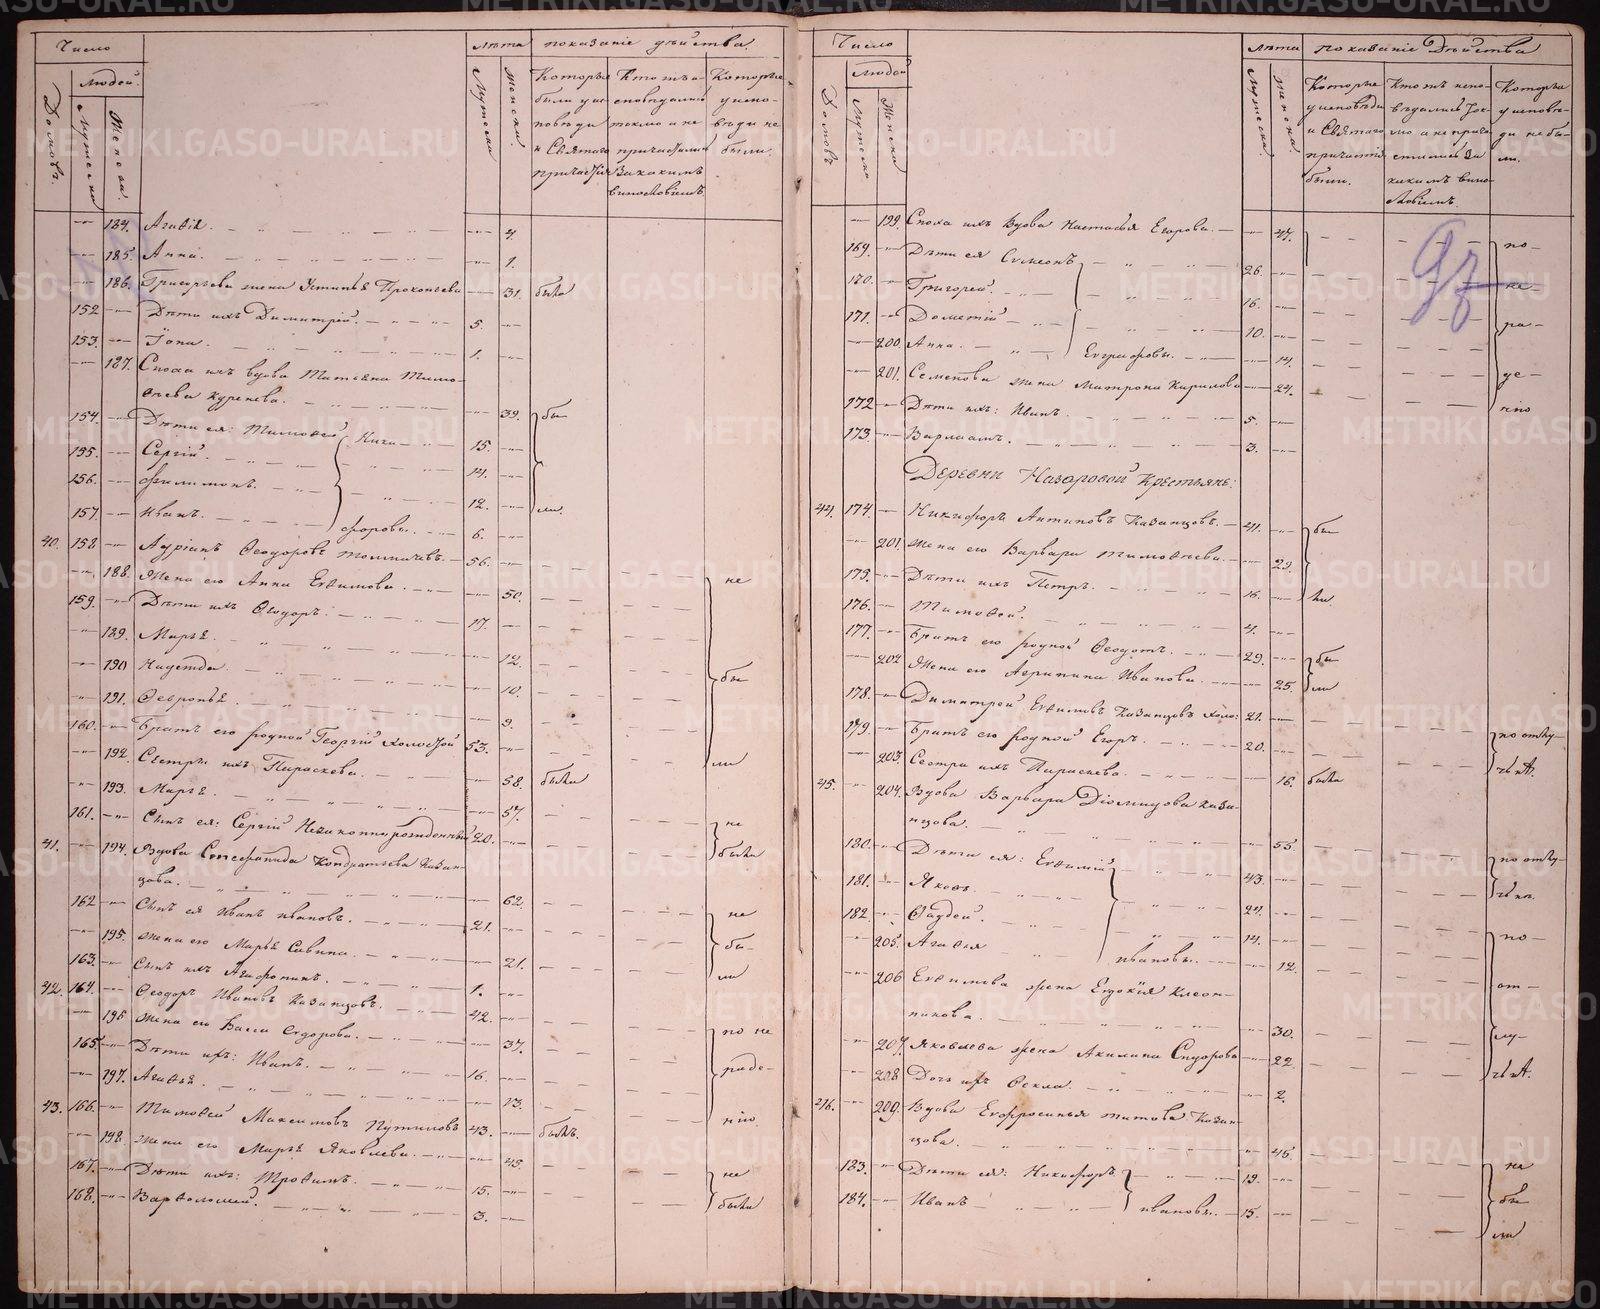 Число
Домовъ.
Людей.
Мужеска
Женска.
лѣта
Мужеска
женска.
показаніе дѣйства.
Которые были у исповѣди и Святаго причастія
Кто исповѣдался токмо а не причастился и за какимъ винословіемъ
Которые у исповѣди не были
184. Агафія. 4.
185. Анна. 1.
186. Григорьева жена Устинья Прокопьева 31. была
152 Дѣти ихъ Димитрій. 5.
153. Іона. 1.
187. Сноха ихъ вдова Татьяна Тимо-
фѣева 39. бы-
154. Дѣти ея: Тимофей Ники- 15.
155. Сергій. 14.
156. Филимонъ. 12. ли.
157. Иванъ. форовы. 6.
40. 158 Адріанъ Феодоровъ 56.
188. Жена его Анна Евфимова. 50. не
159. Дѣти ихъ Феодоръ. 17.
189. Марья. 12.
190 Надежда 10. бы
191. Февронья. 9.
160. Братъ его родной Георгій холостой 53. ли
192. Сестры ихъ Параскева. 58. была
193. Марья. 57.
161. Сынъ ея: Сергій Незаконнорожденный 20. не
41. 194. Вдова Стефанида Кондратьева Казан- были
цова. 62.
162 Сынъ ея Иванъ Ивановъ. 21. не
195. Жена его Марья Савина. 21. бы-
163. Сынъ ихъ Агафоникъ. 1. ли
42. 164. Феодоръ Ивановъ Казанцовъ. 42.
196 Жена его Сидорова. 37. по не
165. Дѣти ихъ: Иванъ. 16. раде-
197. Агафья. 13.
43. 166. Тимофей Максимовъ Путиловъ 43. былъ. нію.
198. Жена его Марья Яковлева. 45.
167. Дѣти ихъ: Трофимъ. 15. не
168. Варфоломей. 3. были
Число
Домовъ
Людей
Мужеска
Женска
лѣта
Мужеска
женска
показаніе Дѣйства
Которые у исповѣди и Святаго причастія были.
Кто исповѣдался токмо а не причастился и за какимъ винословіемъ.
Которые у исповѣди не были.
199. Сноха ихъ Вдова Настасья Егорова. 47. по-
169. Дѣти ея Симеонъ 26.
170. Григорей. 16. не-
171. Дометій 10. ра-
200. Анна. Евграфовы. 14.
201. Семенова жена Матрона Карилова 24. де-
172 Дѣти ихъ: Иванъ. 5. нію
173. Варлаамъ. 3.
Деревни Назаровой Крестьяне:
44. 174. Никифоръ Антиповъ Казанцовъ. 41. бы
201. Жена его Варвара Тимофѣева. 29.
175. Дѣти ихъ Петръ. 16. ли.
176. Тимофей. 4.
177. Братъ его родной Феодотъ. 29. бы
202 Жена его Агрипина Иванова. 25. ли
178. Димитрей Евфимовъ Казанцовъ холо: 21.
179. Братъ его родной Егоръ. 20. по отлу-
203. Сестра ихъ Параскева. 16. была чкѣ.
45. 204. Вдова Варвара Діомидова Казан-
цова. 55.
180. Дѣти ея: Евфимій 43. по отлу-
181. Яковъ. 27. чкѣ.
182. Фаддей. 14.
205. Агафья Ивановы. 12. по-
206 Евфимова жена Евдокія Клеон-
никова. 30. от-
207. Яковлева жена Акилина Сидорова 22. лу-
208 Дочь ихъ Фекла. 2. чкѣ.
46. 209. Вдова Евфросинья Титова Казан-
цова. 46.
183. Дѣти ея: Никифоръ. 19. не
184. Иванъ Ивановы. 15. бы
ли
93
METRIKI.GASO-URAL.RU